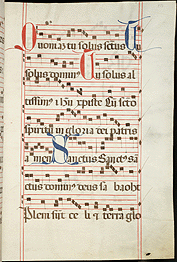 Quoniaz tu solus sctus Tu
solus dominus Tu solus al
tissim9 ihu xpiste Cu scto
spiritu in gloria dei patris
amen Sanctus Sanctus sa
ctus dominus deus sabaoht
Pleni sūt celi et terra glo